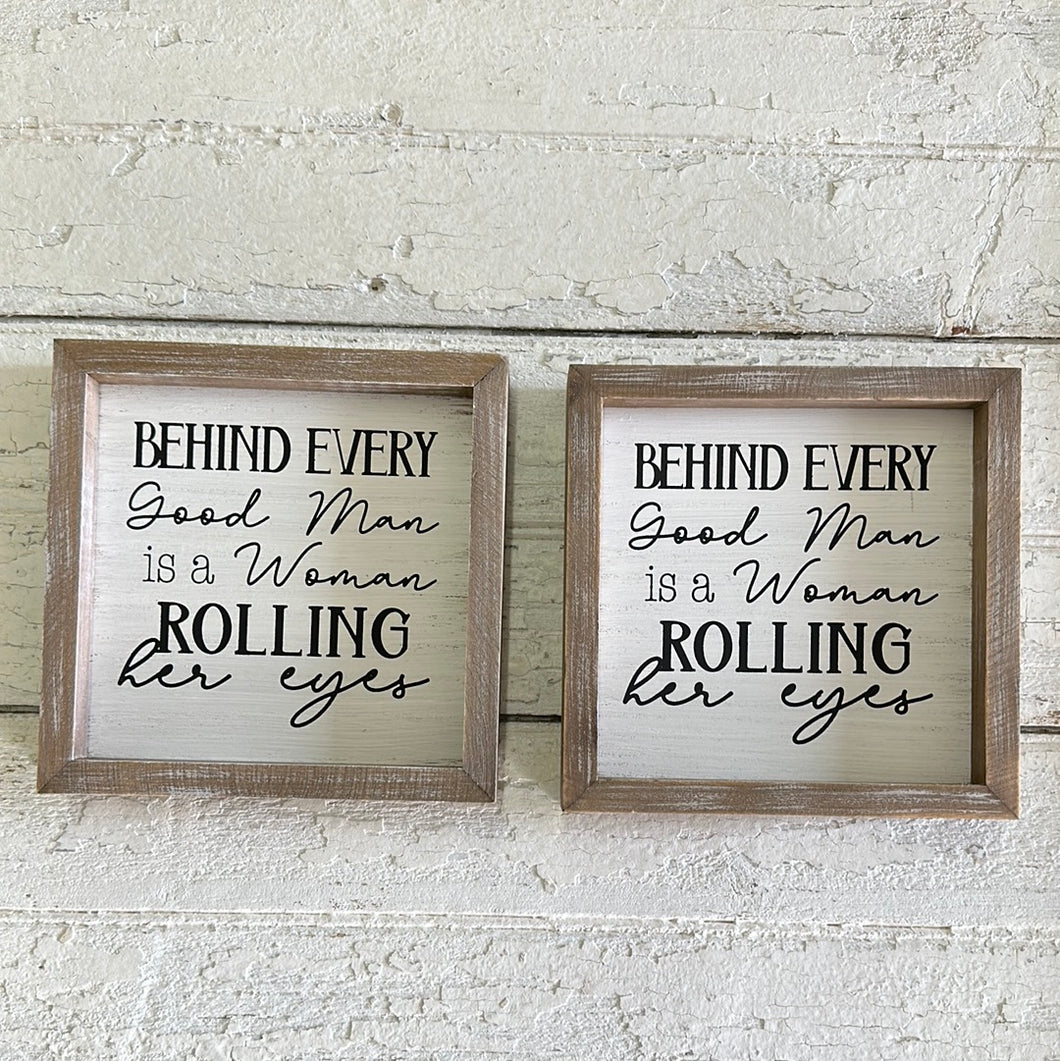 BEHIND EVERY
Good Man
is a Woman
ROLLING
her eyes
BEHIND EVERY
Good Man
is a Woman
ROLLING
her eyes